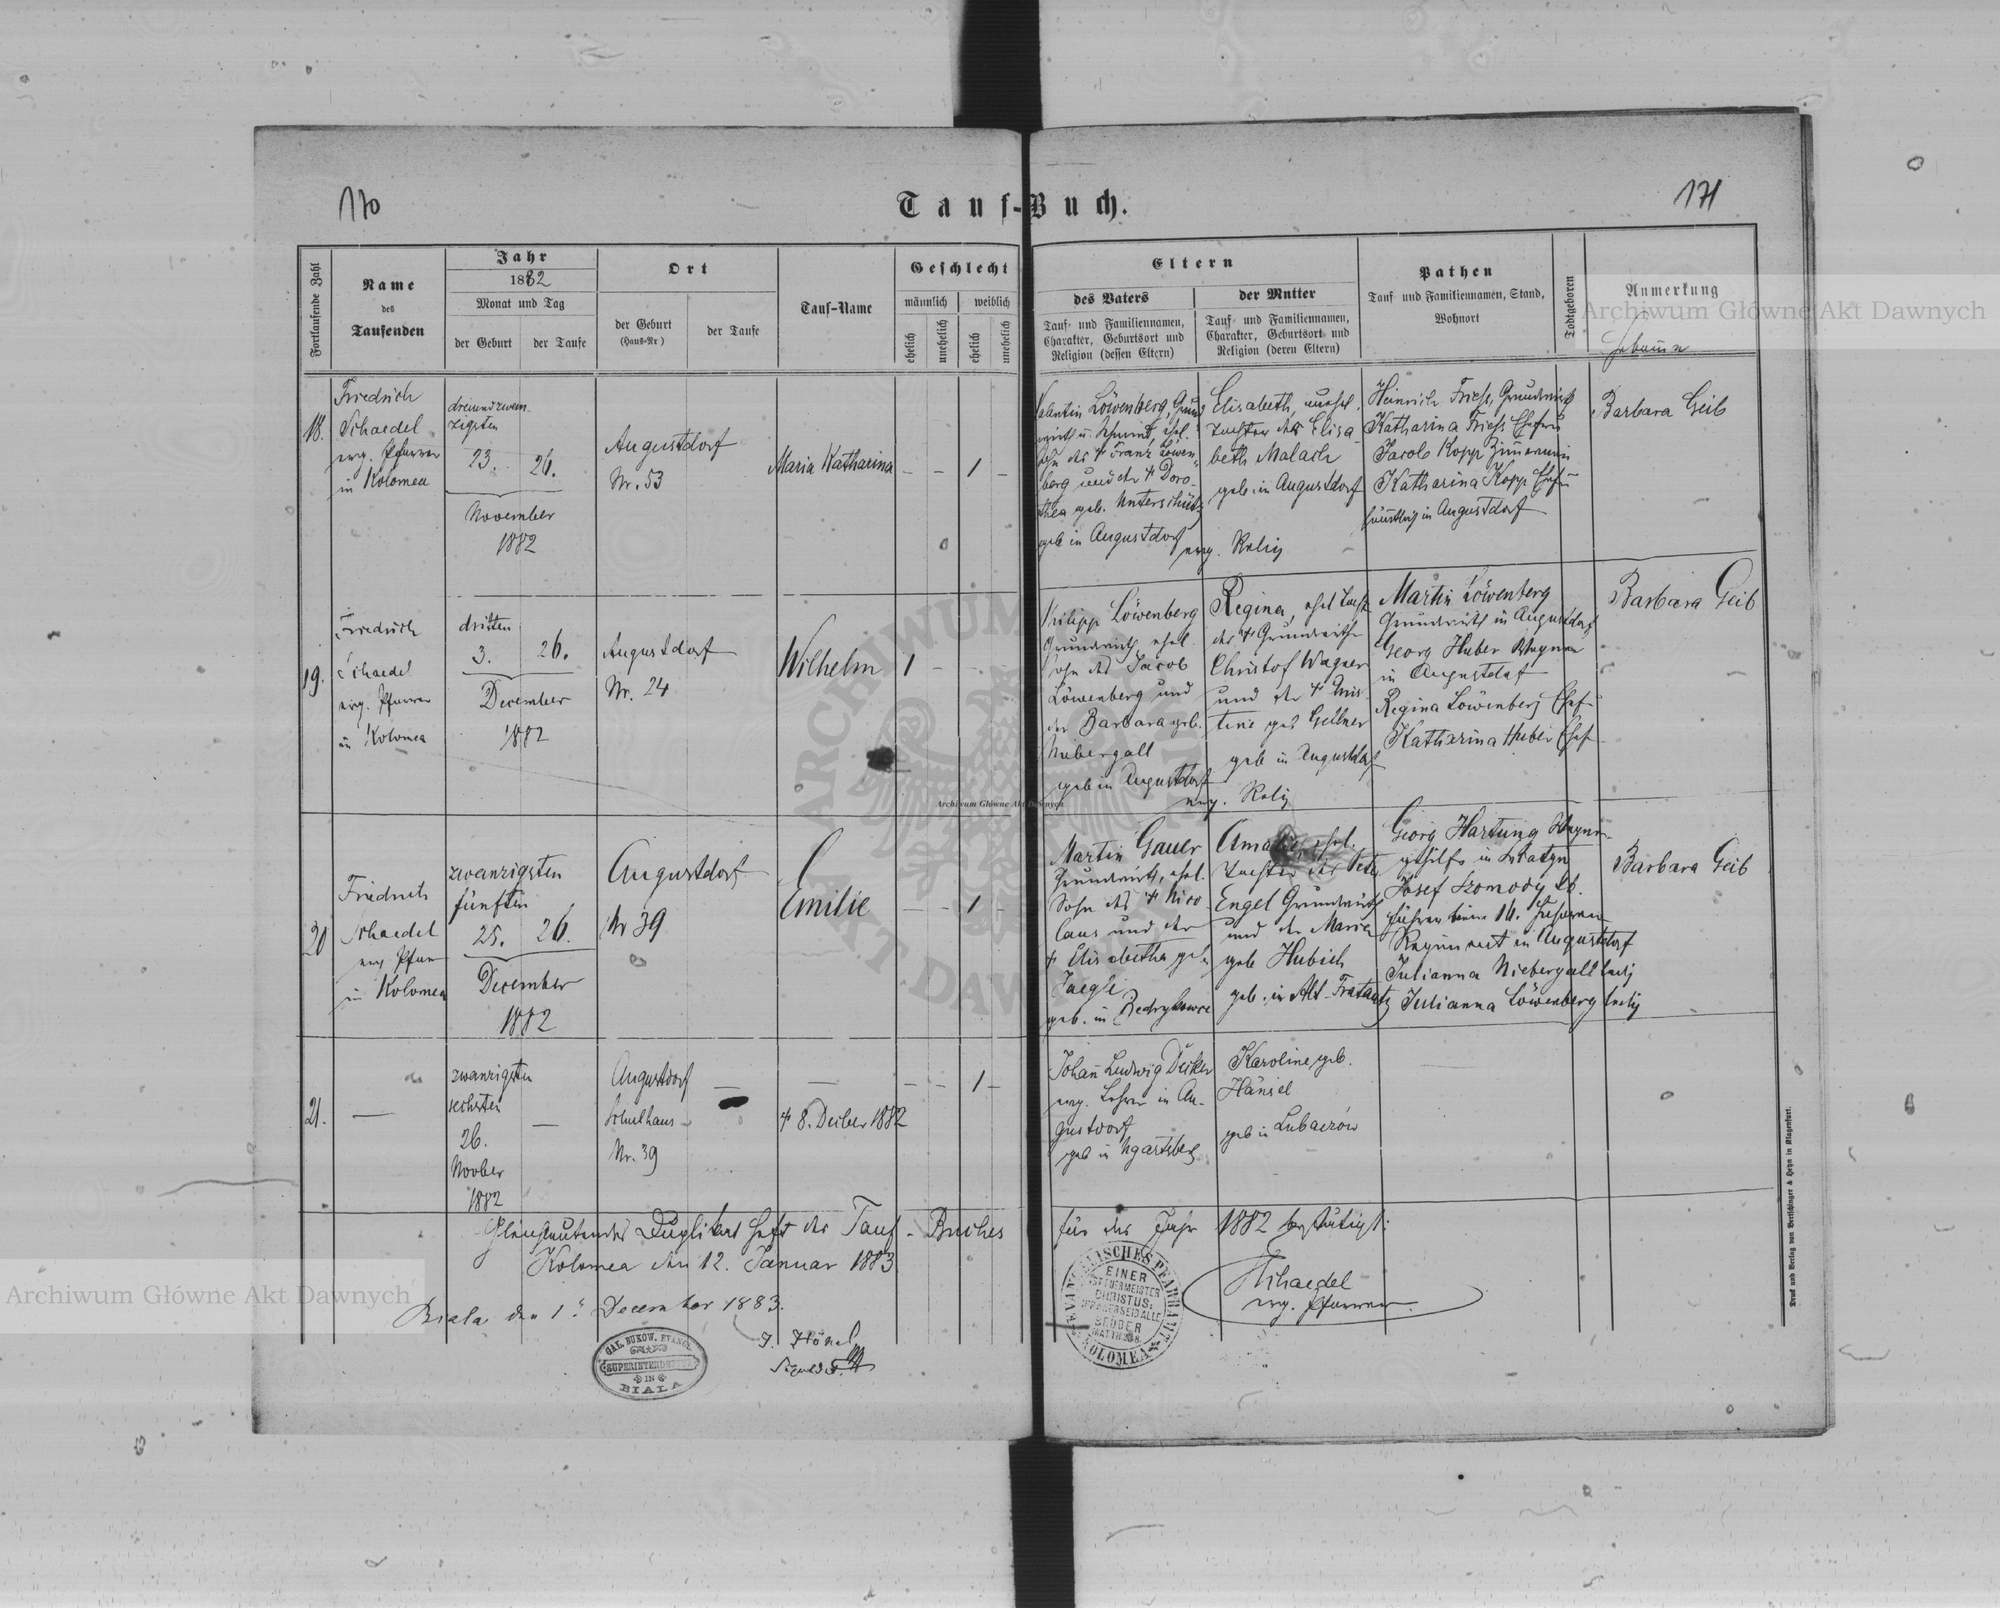 170
171
Tauf-Buch.
Fortlaufende Zahl
Name
des
Taufenden
Jahr
1882
Monat und Tag
der Geburt
der Taufe
Ort
der Geburt
(Haus-Nr)
der Taufe
Tauf-Name
Geschlecht
männlich
weiblich
ehelich
unehelich
ehelich
unehelich
Eltern
des Vaters
Tauf- und Familiennamen,
Charakter, Geburtsort und
Religion (dessen Eltern)
der Mutter
Tauf- und Familiennamen,
Charakter, Geburtsort und
Religion (deren Eltern)
Pathen
Tauf- und Familiennamen, Stand,
Wohnort
Todtgeboren
Anmerkung
18.
Friedrich
Schaedel
evg. Pfarrer
in Kolomea
dreiundzwan-
zigsten
23. 26.
November
1882
Augustdorf
Nr. 53
Maria Katharina
- - 1 -
Valentin Löwenberg, Grund
wirth u. Schmid, ehel.
Sohn des + Franz Löwen-
berg und der + Doro-
thea geb. Unterschütz
geb in Augustdorf
Elisabeth, unehel.
Tochter der Elisa-
beth Malach
geb in Augustdorf
evg. Relig
Heinrich Friess, Grundwirth
Katharina Friess Ehefrau
Jacob Kopp Zimmermann
Katharina Kopp Ehefr
sämtlich in Augustdorf
Barbara Geib
19.
Friedrich
Schaedel
evg. Pfarrer
in Kolomea
dritten
3. 26.
December
1882
Augustdorf
Nr. 24
Wilhelm
1 - - -
Philipp Löwenberg
Grundwirth, ehel.
Sohn des Jacob
Löwenberg und
der Barbara geb.
Niebergall
geb in Augustdorf
Regina, ehel Tocht
des + Grundwirths
Christof Wagner
und der + Chris
tine geb Gellner
geb in Augustdorf
evg. Relig
Martin Löwenberg
Grundwirth in Augustdorf
Georg Huber Wagner
in Augustdorf
Regina Löwenberg Ehef
Katharina Huber Ehef
Barbara Geib
20
Friedrich
Schaedel
evg Pfarr
in Kolomea
zwanzigsten
fünften
25. 26.
December
1882
Augustdorf
Nr 39
Emilie
- - 1 -
Martin Gauer
Grundwirth, ehel.
Sohn des + Nico
laus und der
+ Elisabetha geb
Jaegle
geb. in Bedrykowce
Amalie, ehel.
Tochter des Peter
Engel Grundwirth
und der Maria
geb Hubich
geb. in Alt-Fratautz
Georg Hartung Wagner-
gehilfe in Sniatyn
Josef Szomody
führer beim 16. Husaren
Regiment in Augustdorf
Julianna Niebergall ledig
Julianna Löwenberg ledig
Barbara Geib
21.
zwanzigsten
sechsten
26.
Novber
1882
Augustdorf
Schulhaus
Nr. 39
+ 8. Decber 1882
- - 1 -
Johann Ludwig Decker
evg. Lehrer in Au-
gustdorf
geb in Ugartsberg
Karoline geb.
Hänsel
geb in Lubaczow
Gleichlautendes Duplikat Heft des Tauf-Buches für das Jahr 1882 bestätigt:
Kolomea den 12. Januar 1883
Schaedel
evg. Pfarrer
Biala den 1. December 1883.
J. Hönel
GAL. BUKOW. EVANG.
SUPERINTENDENTUR
IN
BIALA
EVANGELISCHES PFARRAMT
KOLOMEA
EINER
IST EUER MEISTER
CHRISTUS:
IHR ABER SEID ALLE
BRÜDER
MATTH 23,8.
Druck und Verlag von Bertschinger & Heyn in Klagenfurt.
Archiwum Główne Akt Dawnych
Archiwum Główne Akt Dawnych
Archiwum Główne Akt Dawnych